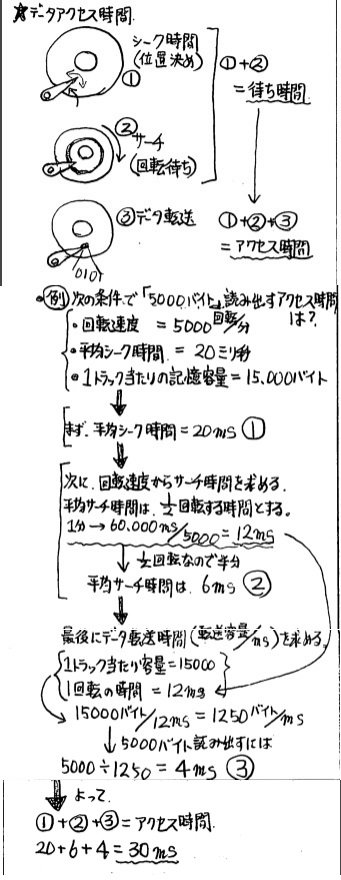 ☆データアクセス時間.
シーク時間
(位置決め)
①
①+②
=待ち時間
②サーチ
(回転待ち)
③データ転送
0101
①+②+③
=アクセス時間
•例 次の条件で「5000バイト」読み出すアクセス時間
は?
・回転速度 = 5000回転/分
・平均シーク時間 = 20ミリ秒
・1トラック当たりの記憶容量=15,000バイト
まず、平均シーク時間=20ms ①
次に、回転速度からサーチ時間を求める.
平均サーチ時間は、1/2回転する時間とする。
1分→60,000ms/5000=12ms
1/2回転なので半分
平均サーチ時間は 6ms ②
最後にデータ転送時間(転送容量/ms)を求める。
1トラック当たり容量=15000
1回転の時間 = 12ms
15000バイト/12ms = 1250バイト/ms
5000バイト読み出すには
5000÷1250=4ms ③
よって.
①+②+③=アクセス時間.
20+6+4=30ms